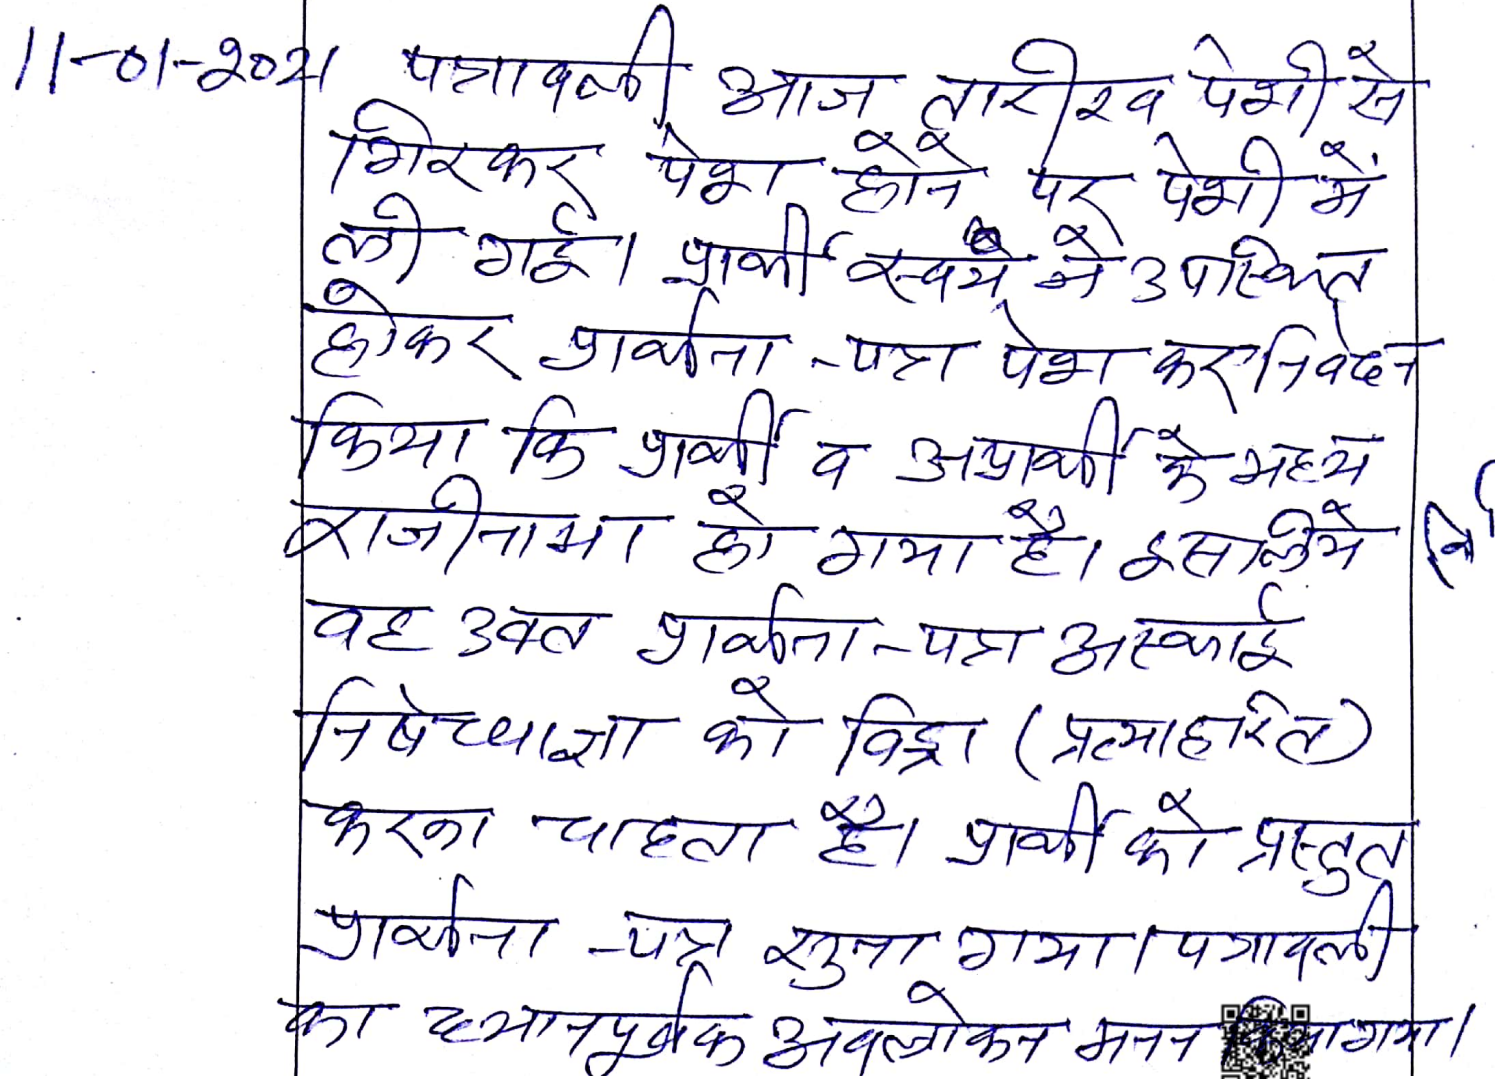 11-01-2021 पत्रावली आज तारीख पेशी से
गिरकर पेश होने पर पेशी में
ली गई। प्रार्थी स्वयं ने उपस्थित
होकर प्रार्थना-पत्र पेश कर निवेदन
किया कि प्रार्थी व अप्रार्थी के मध्य
राजीनामा हो गया है। इसलिये
वह उक्त प्रार्थना-पत्र अस्थाई
निषेध्याज्ञा को विड्रा (प्रत्याहरित)
करना चाहता है। प्रार्थी को प्रस्तुत
प्रार्थना-पत्र सुना गया। पत्रावली
का ध्यानपूर्वक अवलोकन मनन किया गया।